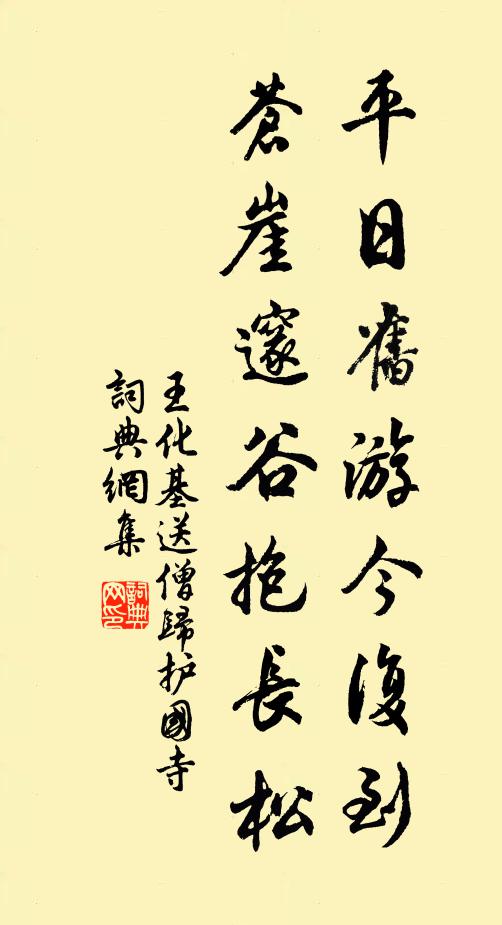 平日舊游今復到
蒼崖邃谷抱長松
王化基送僧歸护國寺
詞典網集
詞典网印